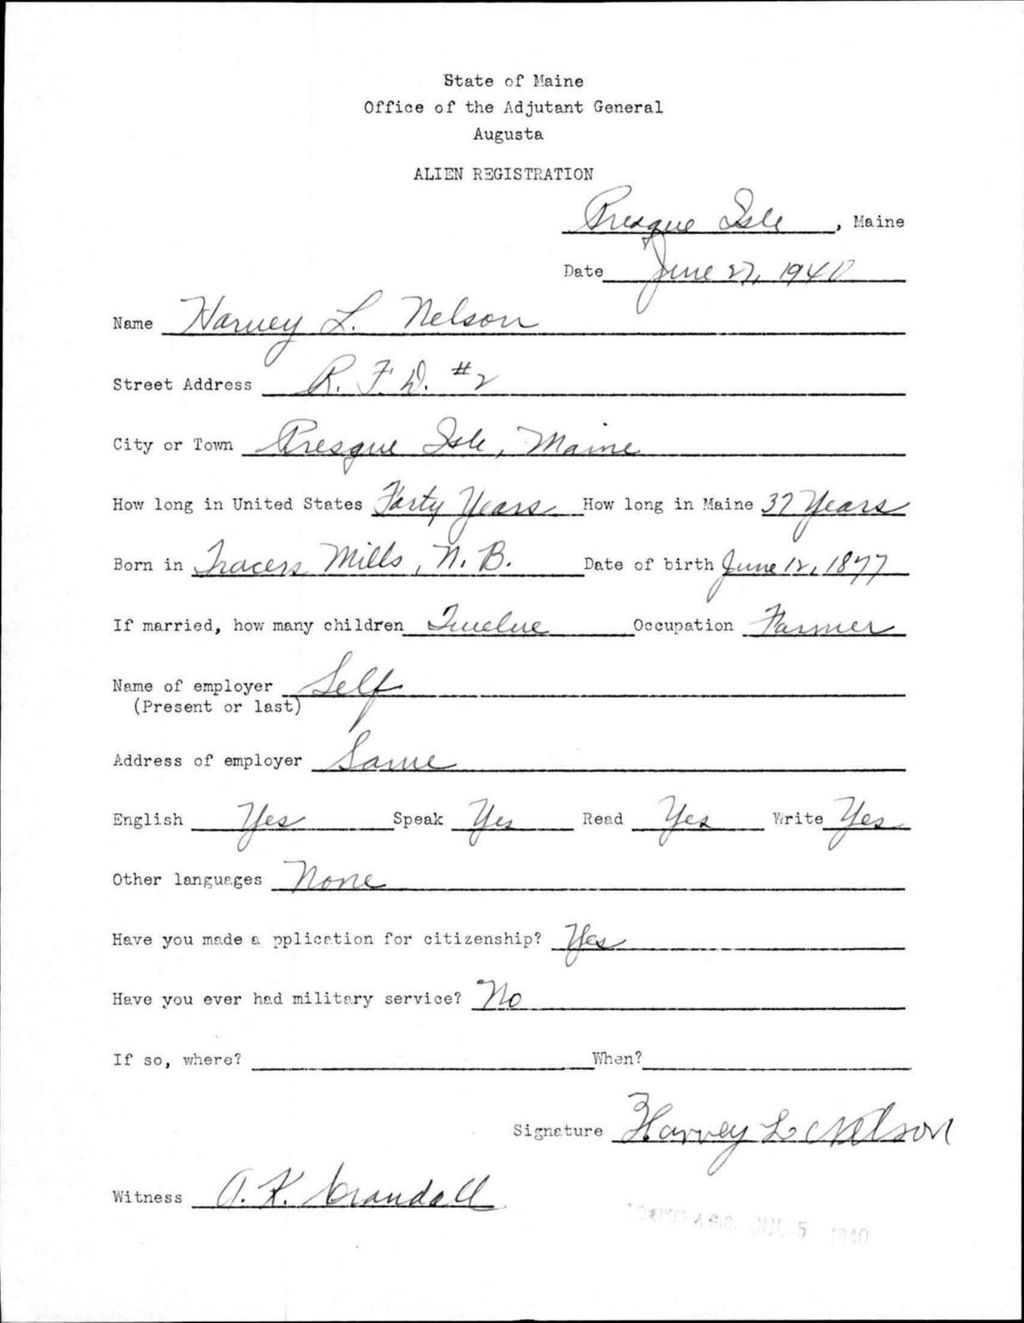 State of Maine
Office of the Adjutant General
Augusta
ALIEN REGISTRATION
Presque Isle, Maine
Date June 27, 1940
Name Harvey L. Nelson
Street Address R. F. D. #2
City or Town Presque Isle, Maine
How long in United States Forty Years How long in Maine 37 Years
Born in Tracers Mills, N. B. Date of birth June 12, 1877
If married, how many children Twelve Occupation Farmer
Name of employer Self
(Present or last)
Address of employer Same
English Yes Speak Yes Read Yes Write Yes
Other languages None
Have you made a pplication for citizenship? Yes
Have you ever had military service? No
If so, where? When?
Signature Harvey L Nelson
Witness A. K. Crandall
JUL 5 1940